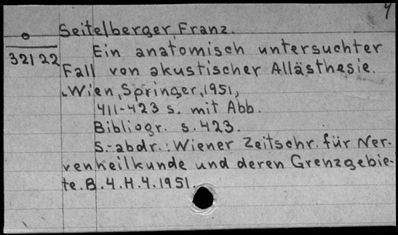 4
Seitelberger, Franz.
o
32122
Ein anatomisch untersuchter
Fall von akustischer Allästhesie.
Wien, Springer, 1951,
411-423 s. mit Abb.
Bibliogr. s. 423.
S.-abdr.: Wiener Zeitschr. für Ner-
venheilkunde und deren Grenzgebie-
te. B. 4. H. 4. 1951.